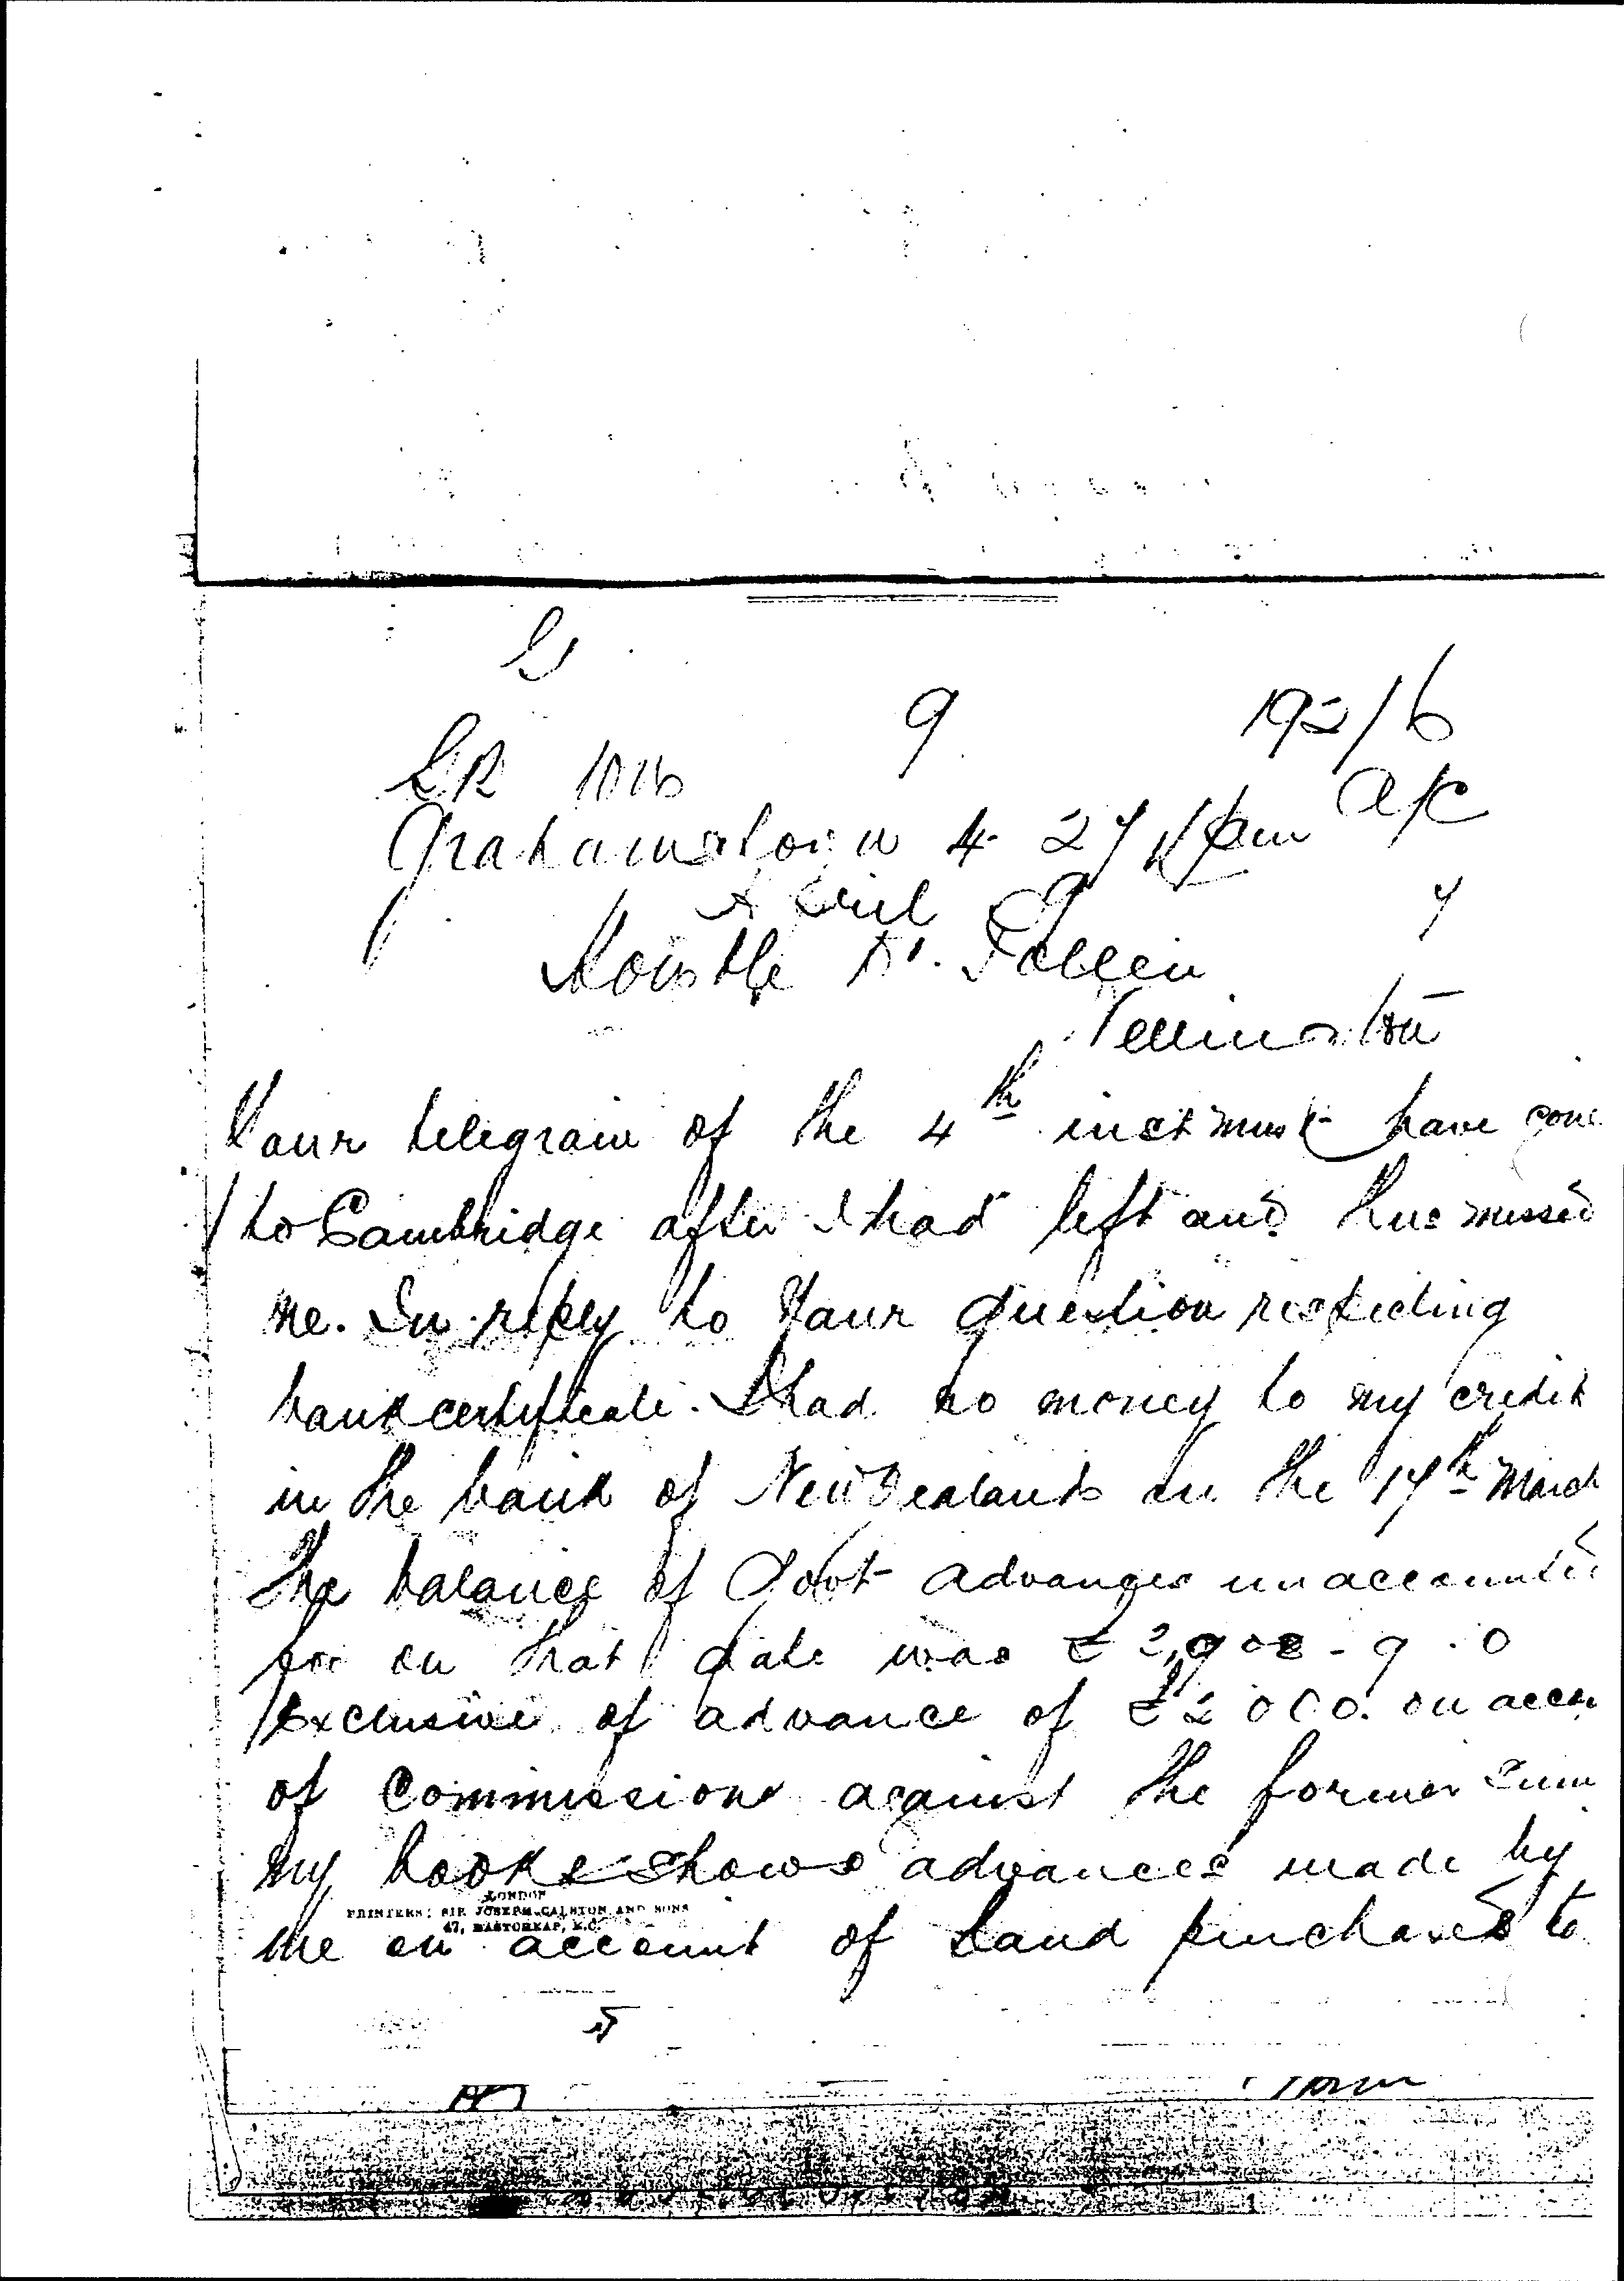 9 192/6
LR
Grahamstown 4 27 pm a/c
April 9 7
Honble Dr. Pollen
Wellington
Your telegram of the 4th inst must have gone
to Cambridge after I had left and thus missed
me. In reply to Your question respecting
bank certificate. I had no money to my credit
in the bank of New Zealand on the 17th March
The balance of Govt advances unaccounted
for on that date was £ 2,908 - 9 . 0
Exclusive of advance of £2000. on accou
of Commissions against the former sum
my books shows advances made by
LONDON
PRINTERS: SIR JOSEPH CAUSTON AND SONS
47, EASTCHEAP, E.C.
me on account of Land purchases to